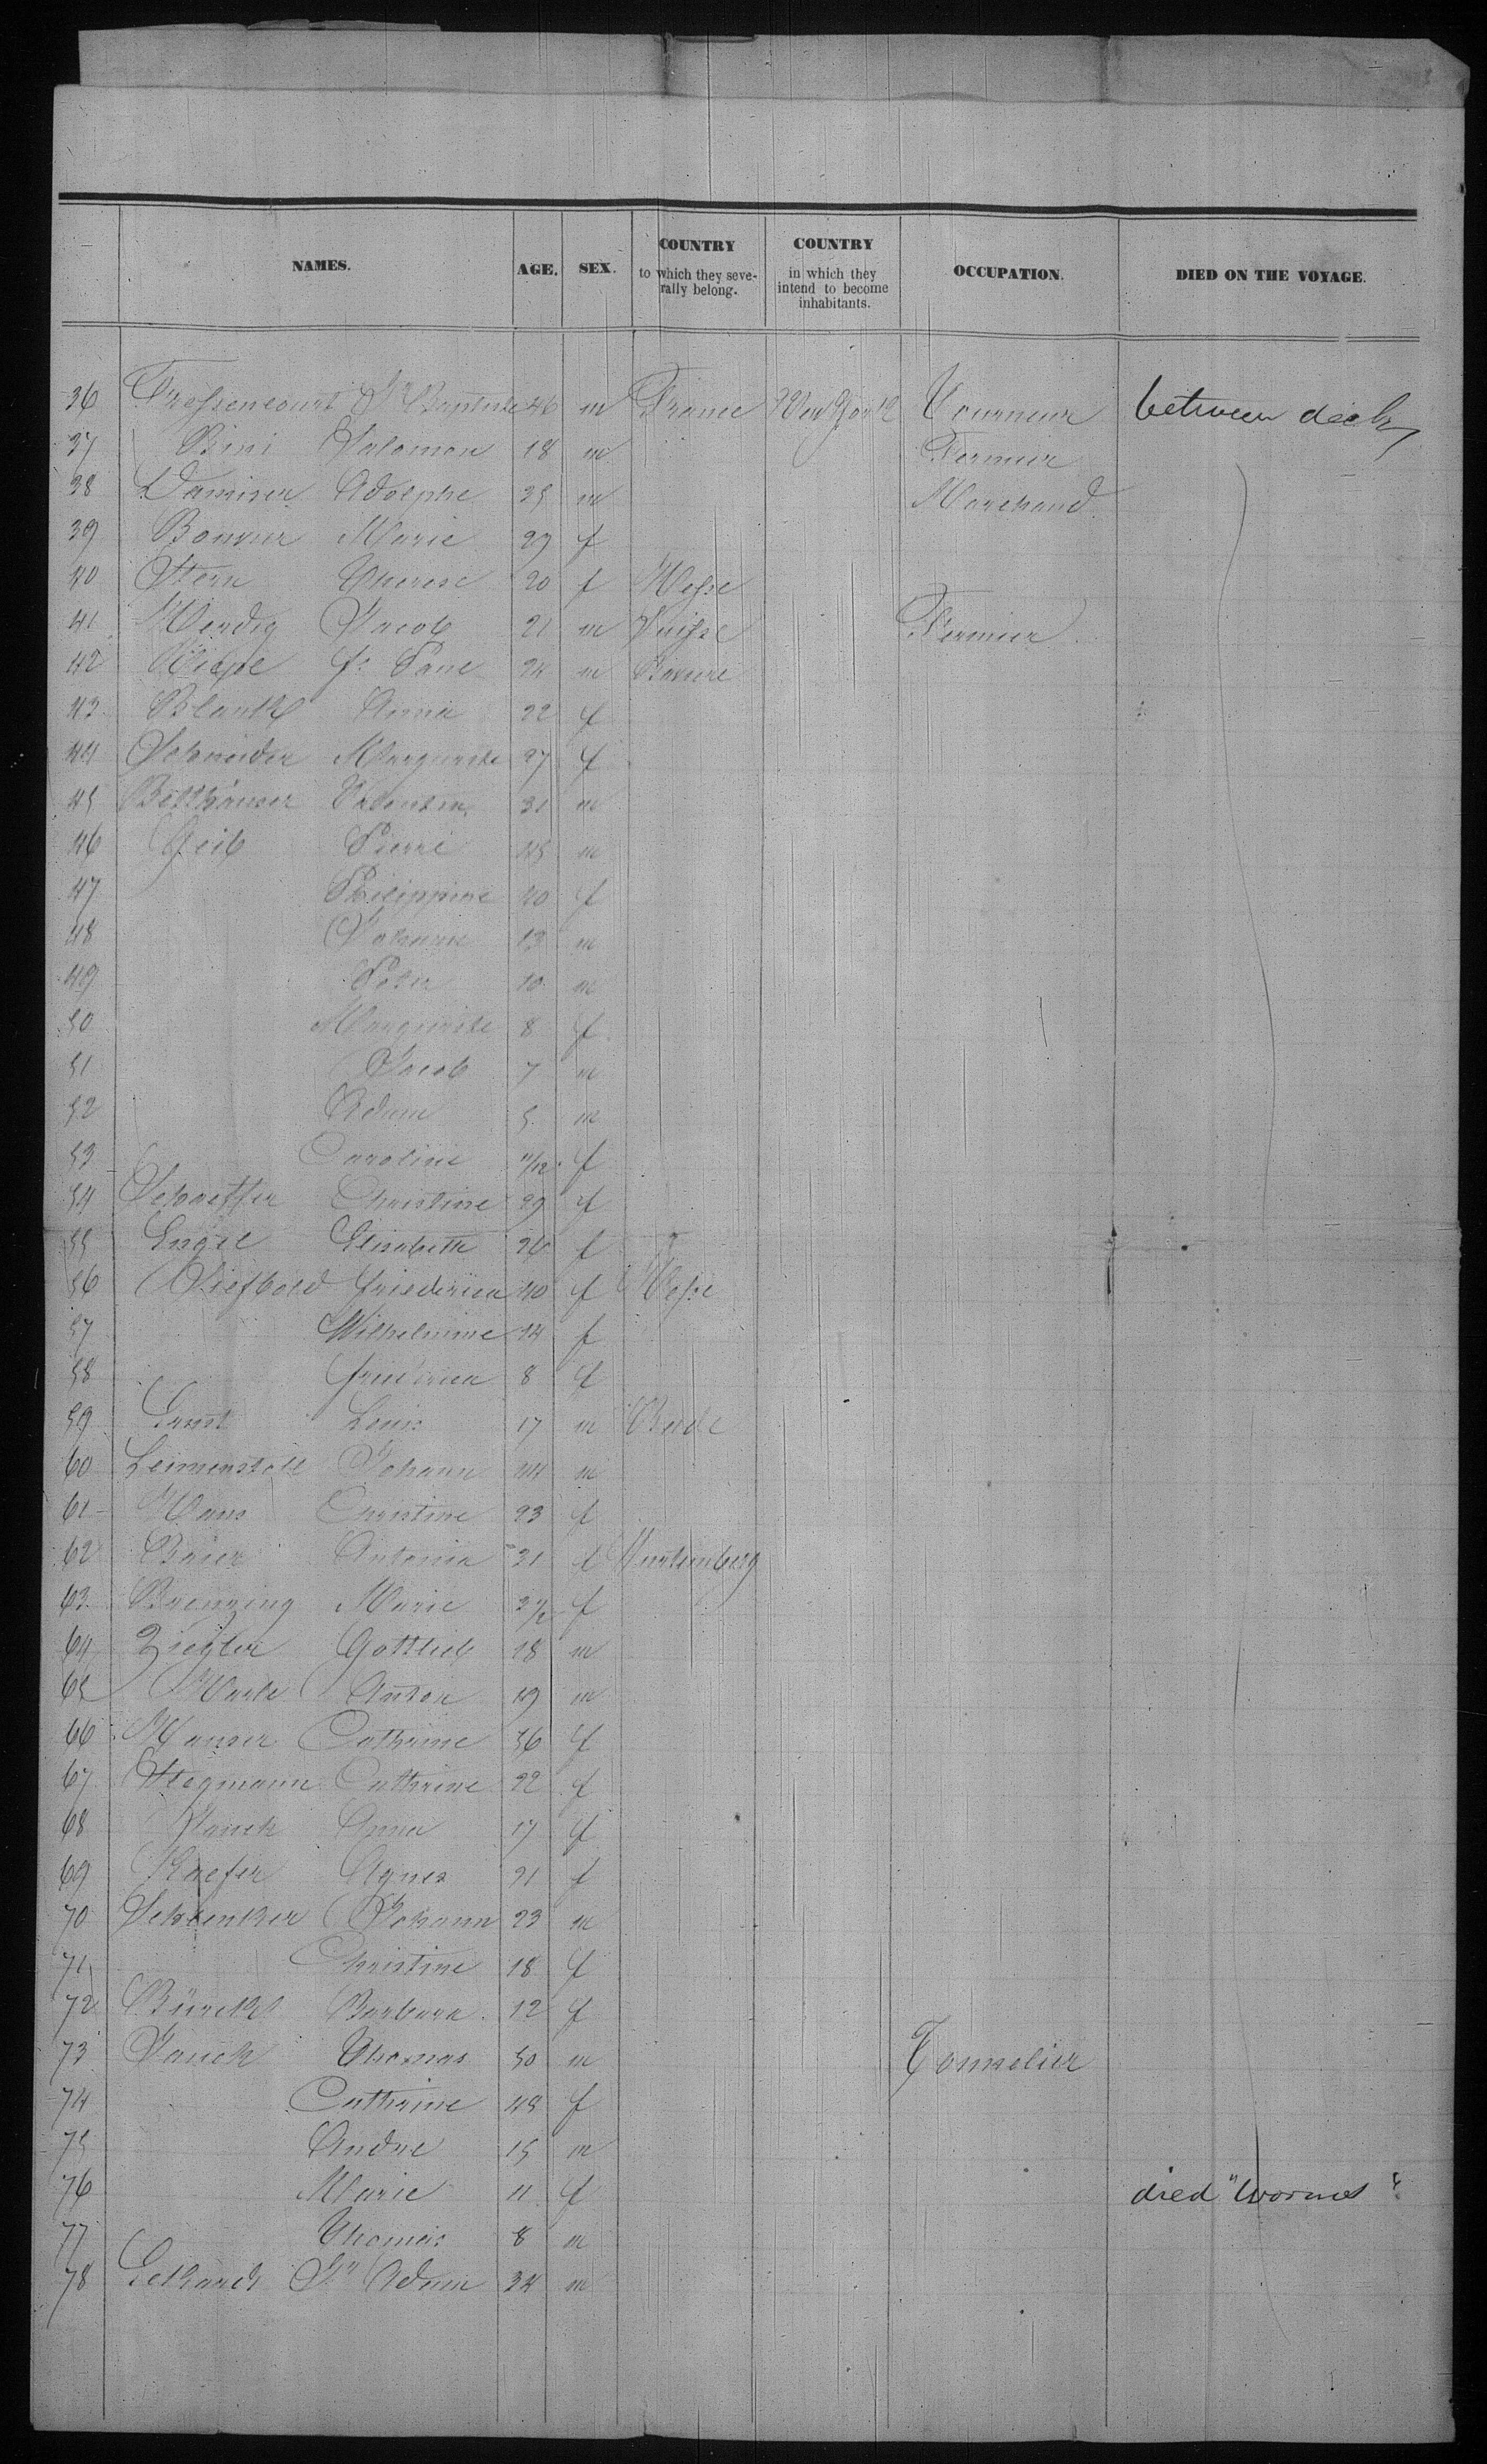 NAMES. AGE. SEX. COUNTRY to which they severally belong. COUNTRY in which they intend to become inhabitants. OCCUPATION. DIED ON THE VOYAGE.
36 Baptiste 46 m France New York Tourneur between decks
37 Salomon 18 m Fermier
38 Adolphe 25 m Marchand
39 Bouvier Marie 29 f
40 Stern Therese 20 f Hesse
41 Jacob 21 m Suisse Fermier
42 24 m Baviere
43 Blank Anna 22 f
44 Schneider Marguerite 27 f
45 Betthäuser Valentin 31 m
46 Geib Pierre 45 m
47 Philippine 40 f
48 Johann 13 m
49 Peter 10 m
50 Marguerite 8 f
51 Jacob 7 m
52 Adam 5 m
53 Caroline 11/12 f
54 Schaeffer Christine 29 f
55 Engel Elisabeth 26 f
56 Friederica 40 f Hesse
57 Wilhelmine 14 f
58 Friedrica 8 f
59 Ernst Louis 17 m Bade
60 Leimenstoll Johann 44 m
61 Christine 23 f
62 Baier Antonia 31 f Wurtemberg
63 Brenzing Marie f
64 Ziegler Gottlieb 18 m
65 Anton 19 m
66 Cathrine 36 f
67 Stegmann Cathrine 22 f
68 Jauch Anna 17 f
69 Kaefer Agnes 21 f
70 Schlenker Johann 23 m
71 Christine 18 f
72 Bürck Barbara 12 f
73 Jauch Thomas 50 m Tonnelier
74 Cathrine 48 f
75 Andre 15 m
76 Marie 11 f died "worms"
77 Thomas 8 m
78 Adam 34 m